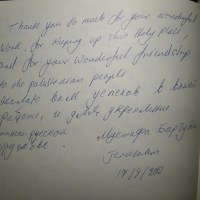 Thank you so much for your wonderful
work, for keeping up this Holy place,
and for your wonderful friendship
to the palestinian people
желаю вам успехов в вашей
работе, и для укрепления
русской
дружбы.
Мустафа Баргути
Jerusalem
17/9/20